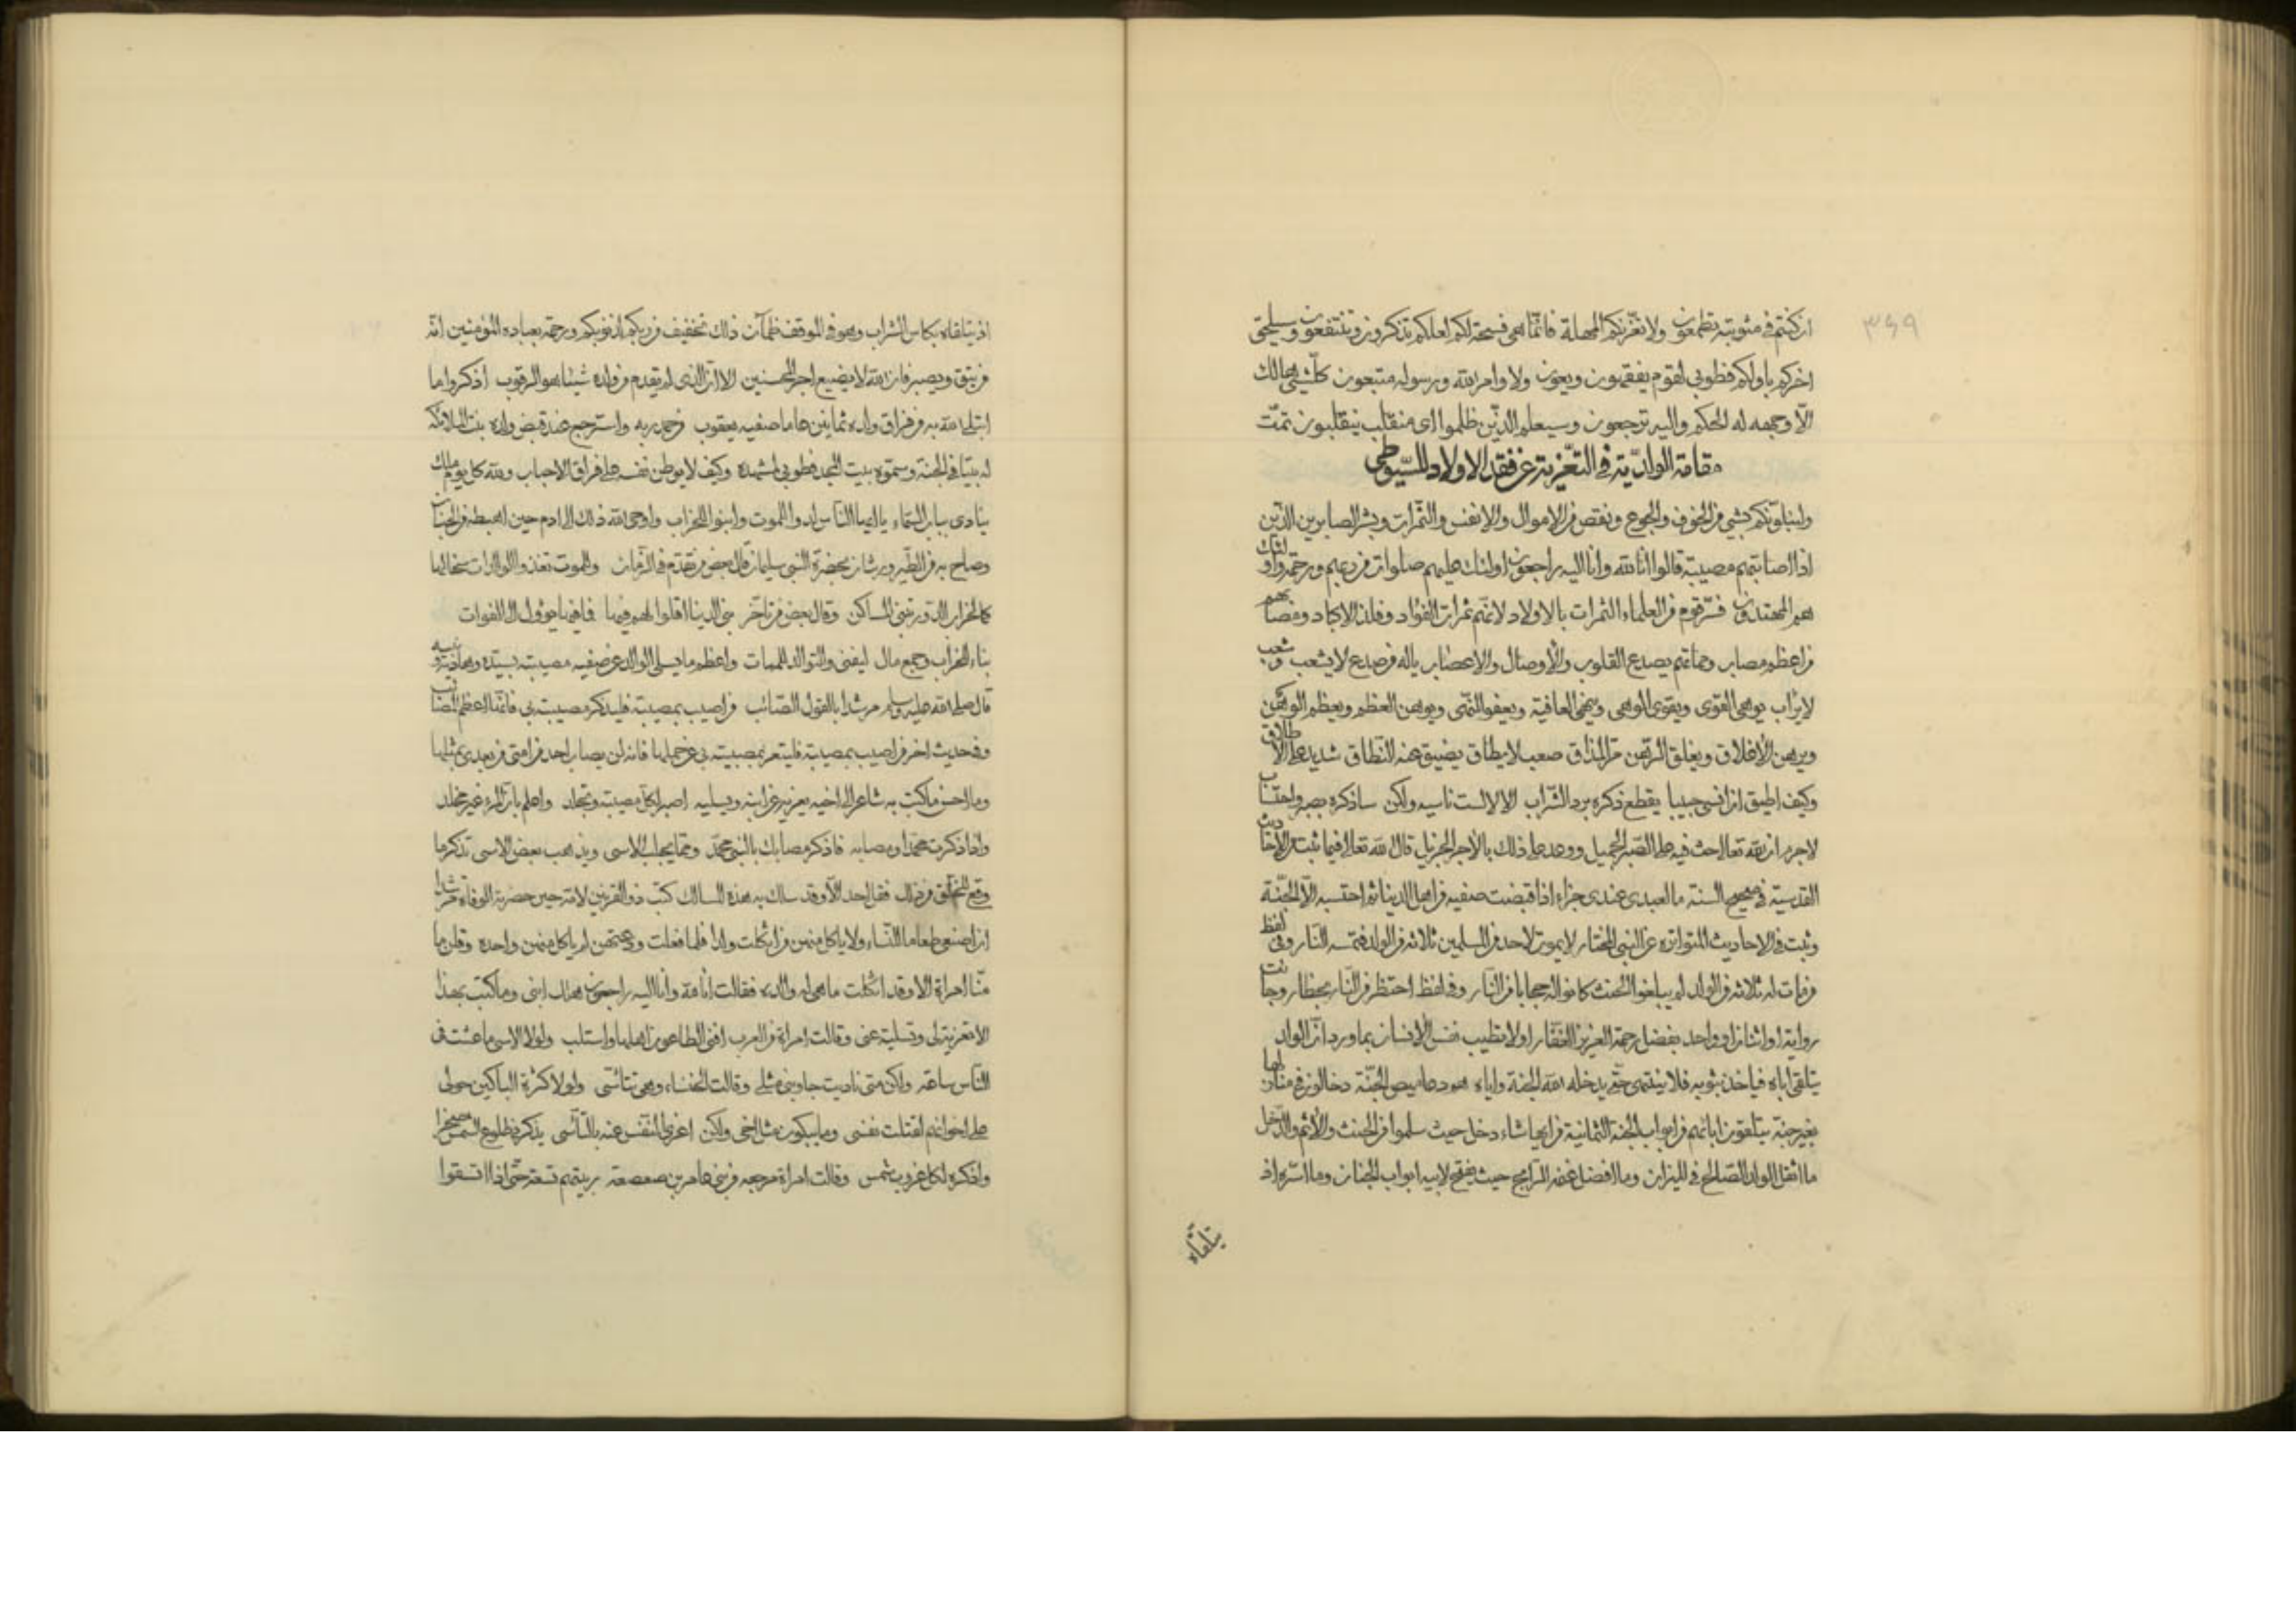 ٣٤٩
ان كنتم فى مثوبته تطمعون ولا تغرّنكم المهملة فانّما هى فسحة لكم لعلكم تذكرون وتنتفعون وسيلحق
اخركم باولكم فطوبى لقوم يفقهون ويعون ولاوامر الله ورسوله متبعون كلّ شئ هالك
الّا وجهه له الحكم واليه ترجعون وسيعلم الذين ظلموا اى منقلب ينقلبون تمّت
مقامة الوالديّة فى التعزية عن فقد الاولاد للسّيوطى
ولنبلونّكم بشئ من الخوف والجوع ونقص من الاموال والانفس والثمرات وبشر الصابرين الّذين
اذا اصابتهم مصيبة قالوا انا لله وانا اليه راجعون اولئك عليهم صلوات من ربهم ورحمة واولئك
هم المهتدون فسّر قوم من العلماء الثمرات بالاولاد لانّهم ثمرات الفؤاد وفلذ الاكباد ومصابهم
من اعظم مصاب وحمامهم يصدع القلوب والاوصال والاعصاب ياله من صدع لا يشعب وشعب
لا يرأب يوهى القوى ويقوى الوهى ويعفو ويوهن العظم ويعظم الوهن
ويرهن الاغلاق ويغلق الرّهن مرّ المذاق صعب لا يطاق يضيق عنه النّطاق شديد على الاطلاق
وكيف اطيق ان انسى حبيبا يقطع ذكره برد الشّراب الا لا لست ناسيه ولكن ساذكره بصبر واحتساب
لاجرم ان الله تعالى حث فيه على الصّبر الجميل ووعد على ذلك بالاجر الجزيل قال الله تعالى فيما ثبت من الاحاديث
القدسيّة فى صحيح السنة ما لعبدى عندى جزاء اذا قبضت صفيه من اهل الدنيا ثم احتسبه الّا الجنّة
وثبت فى الاحاديث المتواتره عن النبى المختار لا يموت لاحد من المسلمين ثلاثه من الولد فتمسه النّار وفى لفظ
من مات له ثلاثه من الولد لم يبلغوا الحنث كانوا له حجابا من النّار وفى لفظ احتظر من النّار بحظار وجاءت
رواية او اثنان او واحد بفضل رحمة العزيز الغفّار اولا تطيب نفس الانسان بما ورد انّ الولد
يتلقى اباه فياخذ بثوبه فلا ينتهى حتّى يدخله الله الجنة واياه هو دعاميص الجنّة دخالون فى منازلها
بغير جنة يتلقون ابائهم من ابواب الجنة الثمانية من ايها شاء دخل حيث سلموا من الحنث والاثم والدّخل
ما اثقل الولد الصّالح فى الميزان وما افضل عنه حيث يفتح لابيه ابواب الجنان وما اسّره اذ
يتلقاه
اذ يتلقاه بكاس الشراب وهو فى الموقف ظمآن ذلك تخفيف من ربكم لذنوبكم ورحمة بعباده المؤمنين انّه
من يتق ويصبر فان الله لا يضيع اجر المحسنين الا ان الذى لم يتقدم من ولده شيئا هو الرقوب اذكروا ما
ابتلى الله به من فراق ولده ثمانين عاما صفيه يعقوب فحمد ربه واسترجع عند قبض ولده بنت الملائكه
له بيتا فى الجنة وسمّوه بيت الحمد فطوبى لمن شهده وكيف لا يوطن نفسه على فراق الاحباب ولله كل يوم ملك
ينادى بباب السّماء يا ايها النّاس لدوا للموت وابنوا للخراب واوحى الله ذلك الى ادم حين اهبطه من الجنان
وصاح به من الطّير ورشان بحضرة النبى سليمان قال بعض من تقدم فى الزّمان وللموت تغذوا الوالدات سخالها
كما لخراب الدّور تبنى المساكن وقال بعض من تاخّر بنى الدنيا اقلوا الهم فيها فما فيها يؤول الى الفوات
بناء للخراب وجمع مال ليفنى والتوالد للممات واعظم ما يسلى الوالد عن صفيه مصيبته بسيّده وهاديه ونبيه
قال صلى الله عليه وسلم مرشدا بالقول الصّائب من اصيب بمصيبة فليذكر مصيبته بى فانّها اعظم المصائب
وفى حديث اخر من اصيب بمصيبة فليتعز بمصيبته بى عن حملها فانه لن يصاب احد من امتى من بعدى بمثلها
وما احسن ما كتب به شاعر الى اخيه يعزيه عن ابنه ويسليه اصبر لكلّ مصيبة وتجلد واعلم بانّ المرء غير مخلد
واذا ذكرت محمّدا ومصابه فاذكر مصابك بالنبى محمّد وممّا يجلب الاسى ويذهب بعض الاسى تذكر ما
وقع للخلق من ذلك فقل احد الّا وقد سلك به هذه المسالك كتب ذو القرنين لامّه حين حضرته الوفاة مرشدا
ان اصنعى طعاما للنّساء ولا ياكل منهن من اثكلت ولدا فلما فعلت ودعتهن لم ياكل منهن واحدة وقلن ما
منّا امراة الا وقد اثكلت ما هى له والده فقالت انا لله وانا اليه راجعون هلك ابنى وما كتب بهذا
الا تعزية لى وتسلية عنى وقالت امراة من العرب افنى الطاعون اهلها واستلب ولولا الاسى ما عشت فى
النّاس ساعة ولكن متى ناديت جاوبنى مثلى وقالت الخنساء وهى تتاسّى ولولا كثرة الباكين حولى
على اخوانهم لقتلت نفسى وما يبكون مثل اخى ولكن اعزى النّفس عنه بالتّأسّى يذكرنى طلوع الشّمس صخرا
واذكره لكل غروب شمس وقالت امراة من بنى عامر بن صعصعة ربيتهم تسعة حتّى اذا اتسقوا